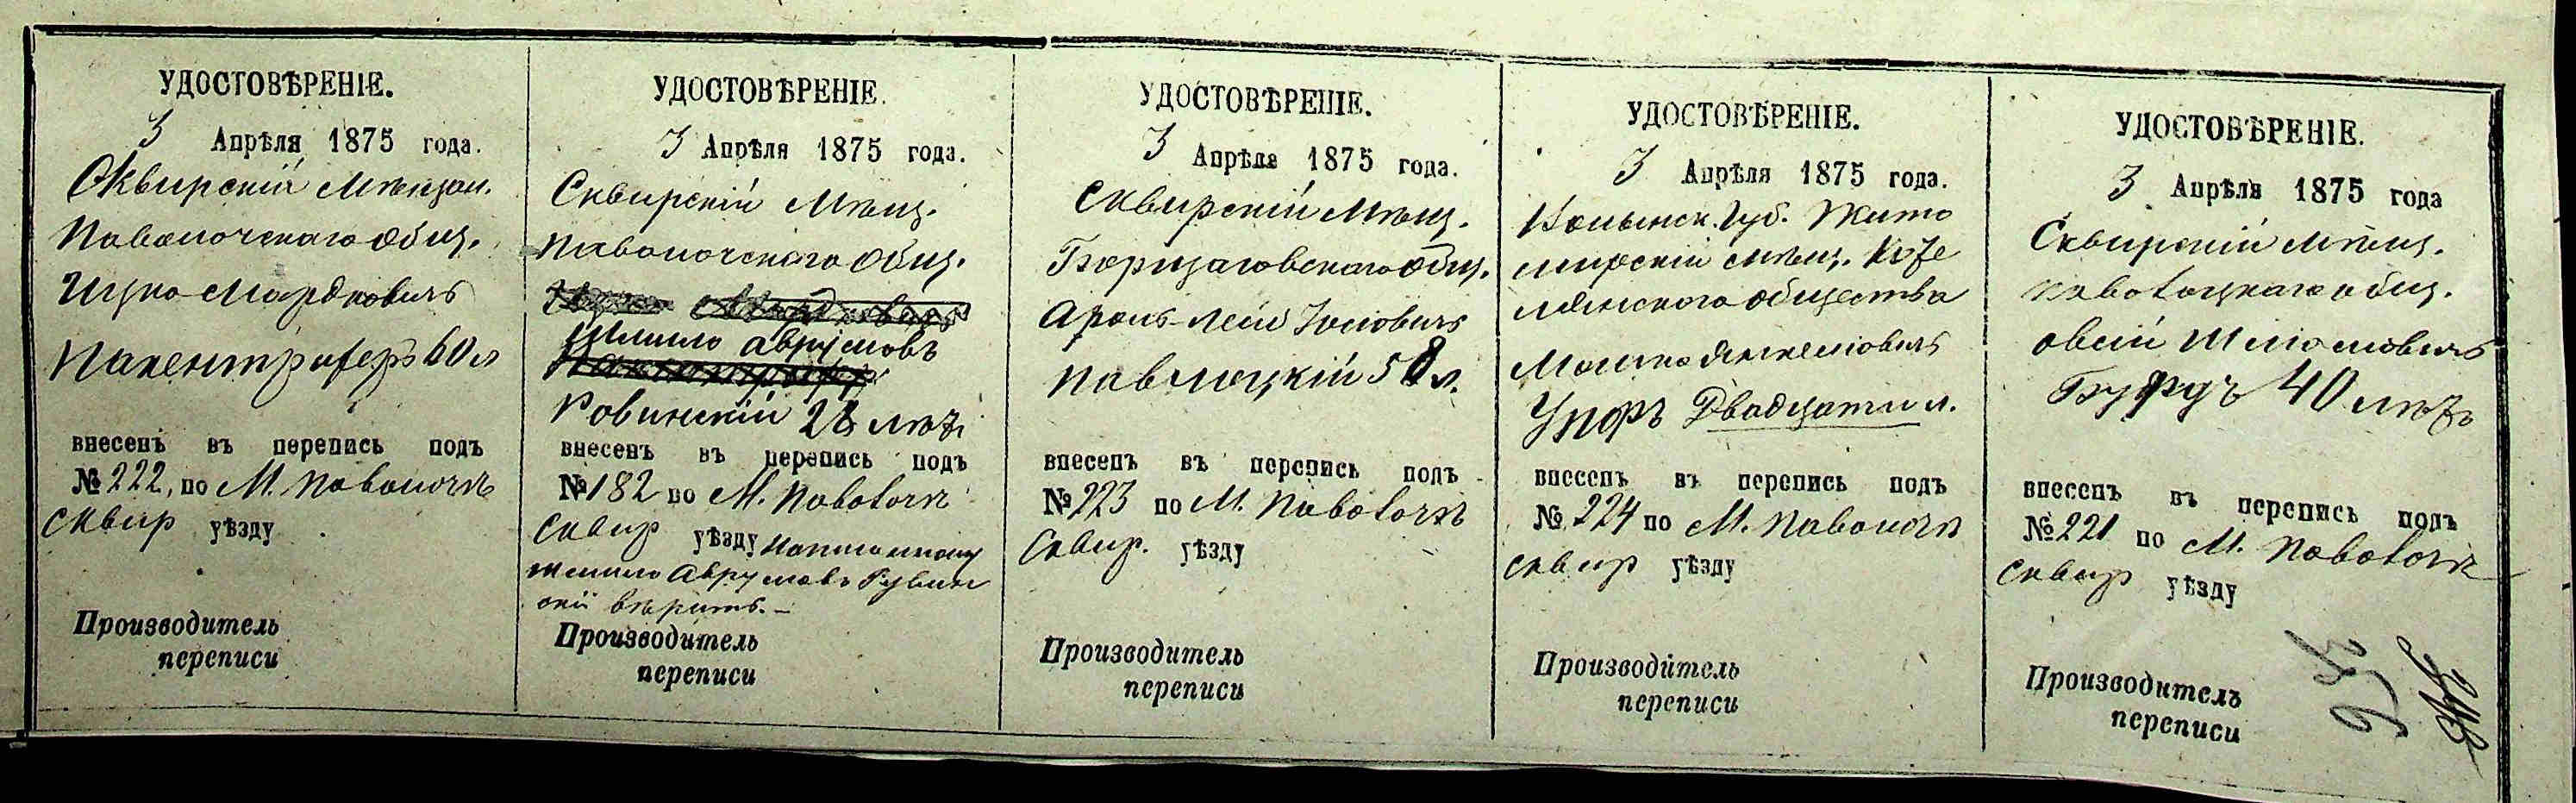 УДОСТОВѢРЕНІЕ.
3 Апрѣля 1875 года.
Сквирскій мѣщан.
Паволочскаго общ.
Ицко Мардковичъ
60 л
внесенъ въ перепись подъ
№ 222, по М. Паволочѣ
Сквир уѣзду
Производитель
переписи
УДОСТОВѢРЕНІЕ.
3 Апрѣля 1875 года.
Сквирскій мѣщ.
Паволочскаго общ.
Шлиомо Аврумовъ
Ровинскій 28 лѣтъ
внесенъ въ перепись подъ
№ 182 по М. Паволочѣ
Сквир уѣзду
Аврумовъ Рувин
скій вѣрить. —
Производитель
переписи
УДОСТОВѢРЕНІЕ.
3 Апрѣля 1875 года.
Сквирскій мѣщ.
Борщаговскаго общ.
Аронъ-Лейб Іосіовичъ
Паволоцкій 58 л.
внесенъ въ перепись подъ
№ 223 по М. Паволочѣ
Сквир. уѣзду
Производитель
переписи
УДОСТОВѢРЕНІЕ.
3 Апрѣля 1875 года.
Волынск. Губ. Жито
мирскій мѣщ.
общества
Мошко Янкеліовичъ
Двадцати л.
внесенъ въ перепись подъ
№ 224 по М. Паволочѣ
Сквир уѣзду
Производитель
переписи
УДОСТОВѢРЕНІЕ.
3 Апрѣля 1875 года
Сквирскій мѣщ.
Паволоцкаго общ.
Овсій Шліомовичъ
40 лѣтъ
внесенъ въ перепись подъ
№ 221 по М. Паволочѣ
Сквир уѣзду
Производитель
переписи